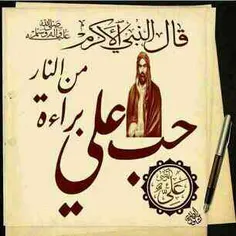 قال النبي الأكرم صلى الله عليه وآله وسلم
حب علي براءة
من النار
علي